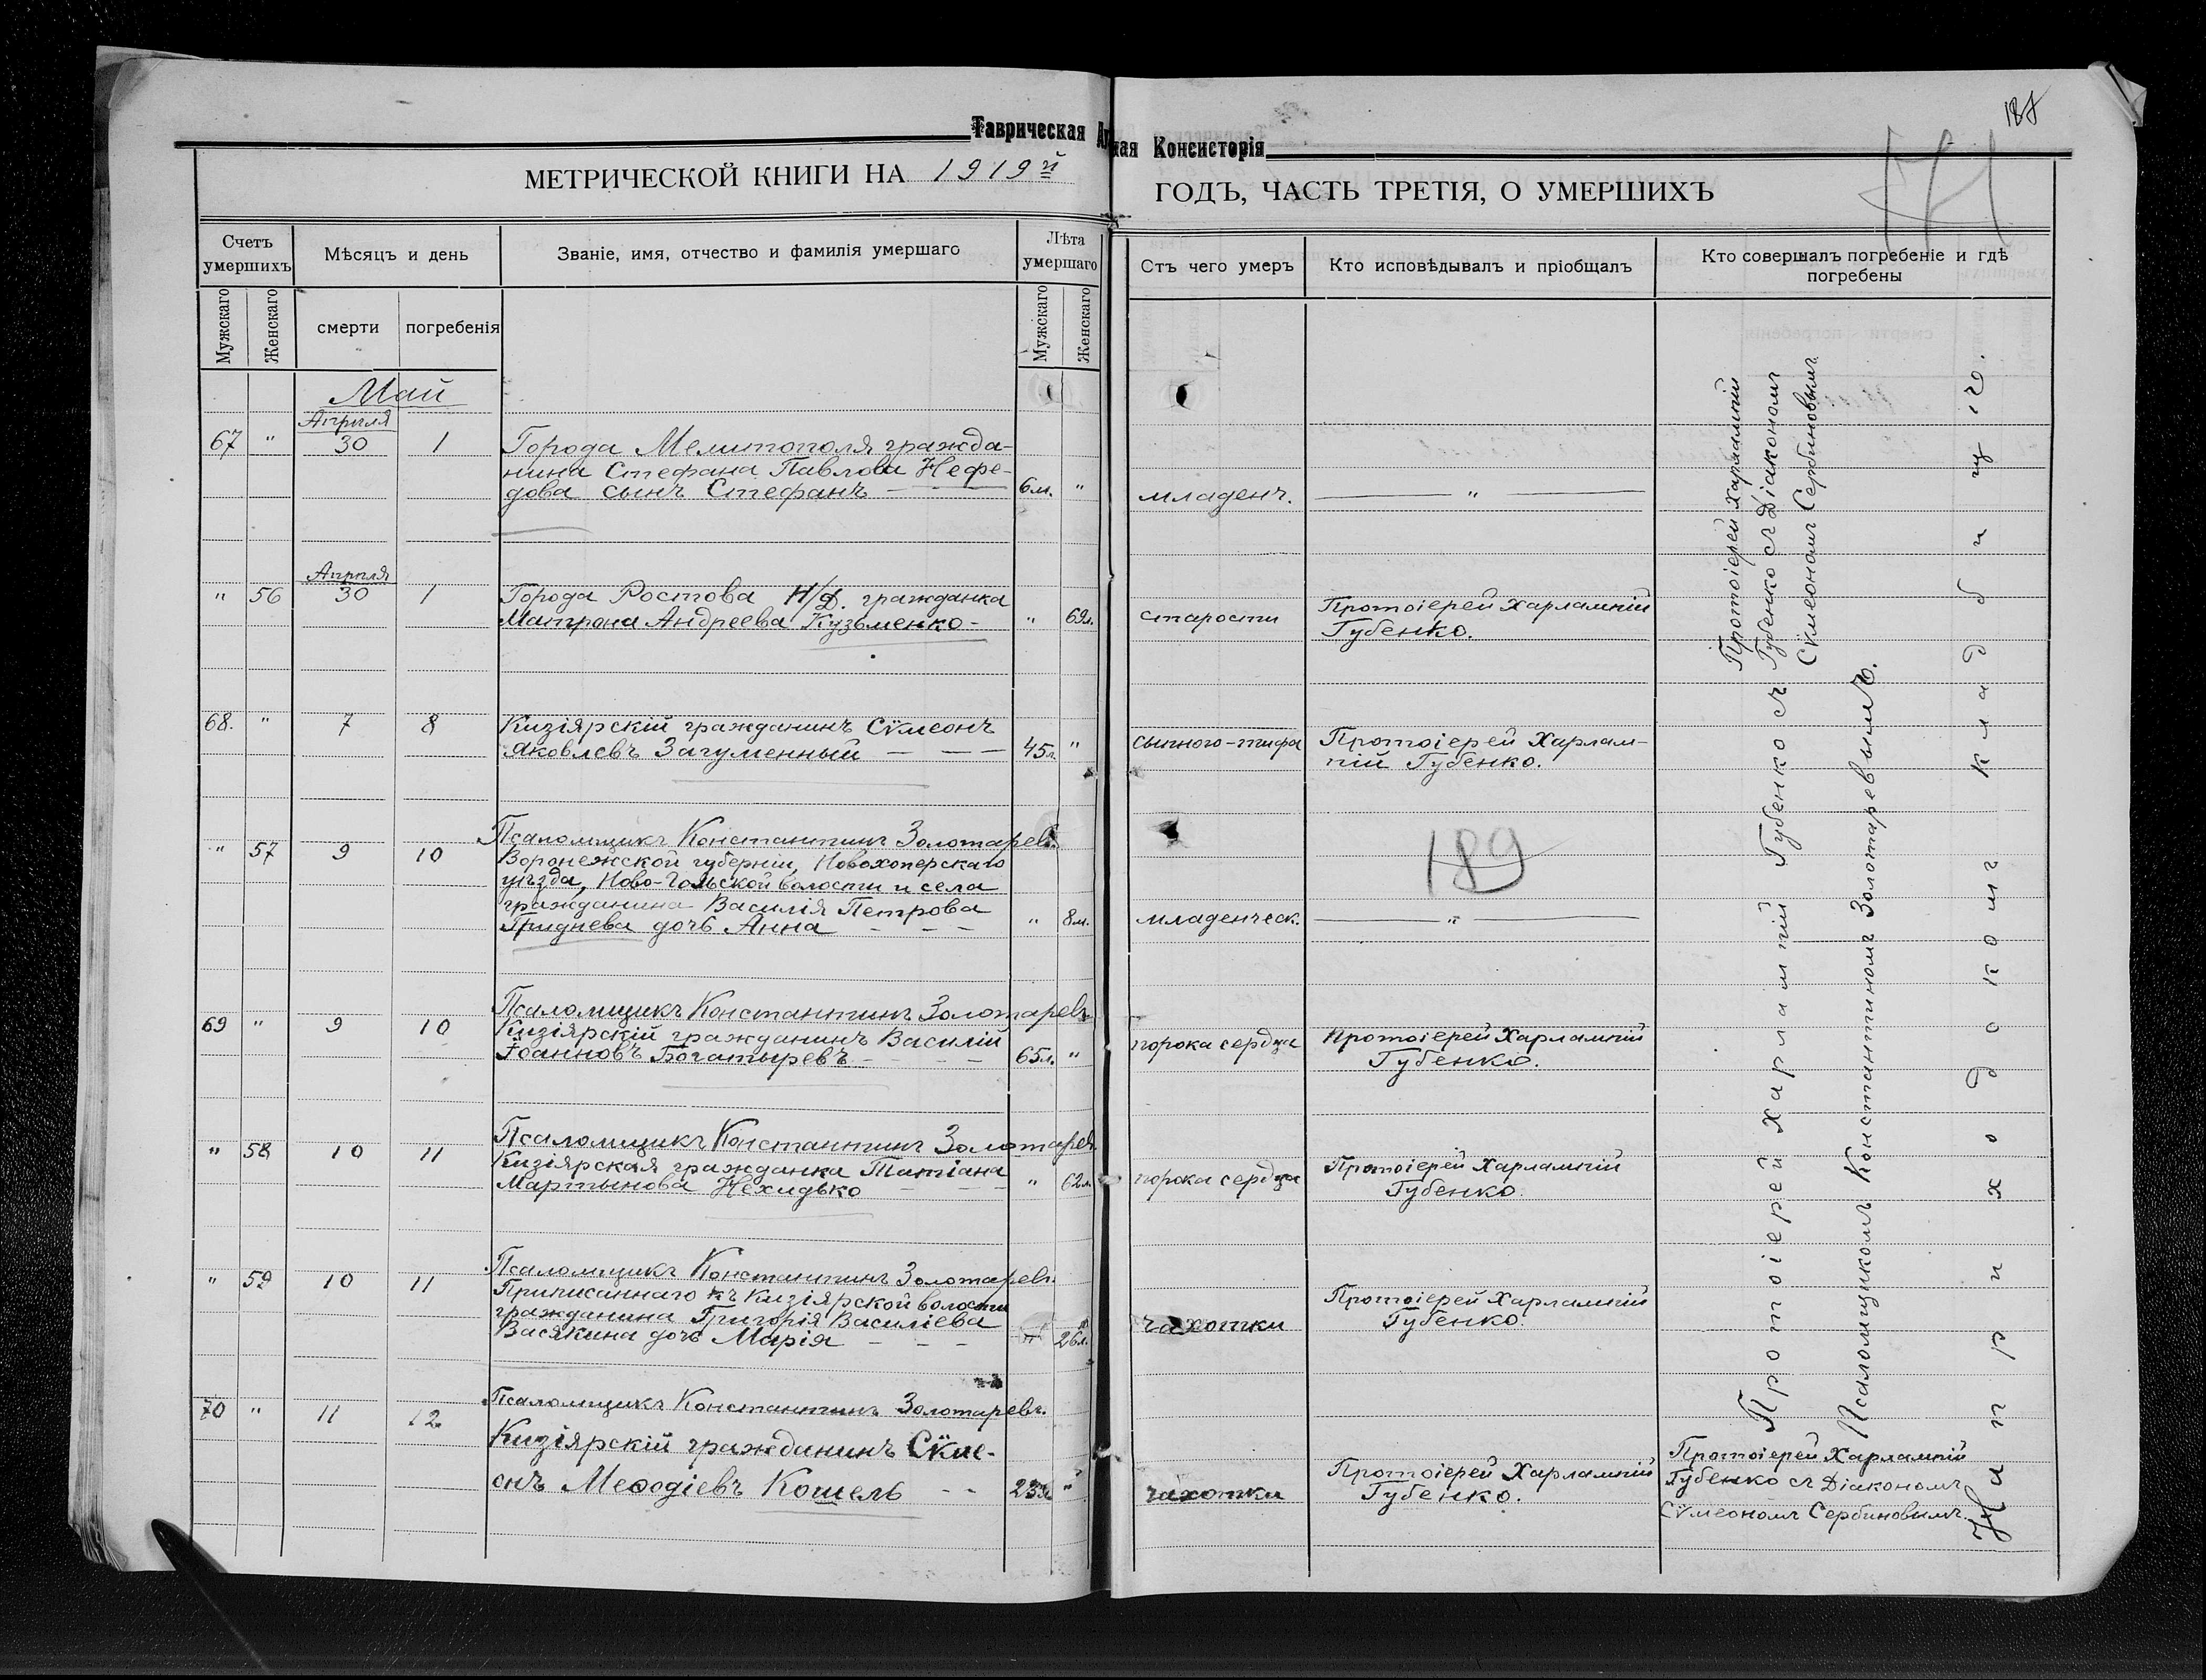 Таврическая
ная Консисторія
187
МЕТРИЧЕСКОЙ КНИГИ НА 1919й
ГОДЪ, ЧАСТЬ ТРЕТІЯ, О УМЕРШИХЪ
Счетъ умершихъ
Мѣсяцъ и день
Званіе, имя, отчество и фамилія умершаго
Лѣта умершаго
Стъ чего умеръ
Кто исповѣдывалъ и пріобщалъ
Кто совершалъ погребеніе и гдѣ погребены
Мужскаго
Женскаго
смерти
погребенія
Мужскаго
Женскаго
Май
Апрѣля
67 " 30 1
Города Мелитополя гражда-
нина Стефана Павлова Нефе-
дова сынъ Стефанъ — 6м. "
младенч.
— " —
Апрѣля
" 56 30 1
Города Ростова Н/Д. гражданка
Матрона Андреева Кузьменко - " 69л.
старости
Протоіерей Харлампій
Губенко.
68. " 7 8
Кизіярскій гражданинъ Сѵмеонъ
Яковлевъ Загуменный — — 45л. "
сыпного-тифа
Протоіерей Харлам-
пій Губенко.
Псаломщикъ Константинъ Золотаревъ.
" 57 9 10
Воронежской губерніи, Новохоперскаго
уѣзда, Ново-Гольской волости и села
гражданина Василія Петрова
Гриднева дочь Анна — — — " 8м.
младенческ.
— " —
189
Псаломщикъ Константинъ Золотаревъ.
69 " 9 10
Кизіярскій гражданинъ Василій
Іоанновъ Богатыревъ — — — 65л. "
порока сердца
Протоіерей Харлампій
Губенко.
Псаломщикъ Константинъ Золотаревъ.
" 58 10 11
Кизіярская гражданка Татіана
Мартынова Нехидько — — " 62л.
порока сердца
Протоіерей Харлампій
Губенко.
Псаломщикъ Константинъ Золотаревъ.
" 59 10 11
Приписаннаго къ Кизіярской волости
гражданина Григорія Василіева
Васякина дочь Марія — — — " 26л.
чахотки
Протоіерей Харлампій
Губенко.
Псаломщикъ Константинъ Золотаревъ.
70 " 11 12
Кизіярскій гражданинъ Сѵме-
онъ Меѳодіевъ Кошель — — 23л. "
чахотки
Протоіерей Харлампій
Губенко.
Протоіерей Харлампій
Губенко съ Діакономъ
Сѵмеономъ Сербиновымъ.
Протоіерей Харлампій
Губенко съ Діакономъ
Сѵмеономъ Сербиновымъ.
Протоіерей Харлампій Губенко съ
Псаломщикомъ Константиномъ Золотаревымъ.
На приходскомъ кладбищѣ.